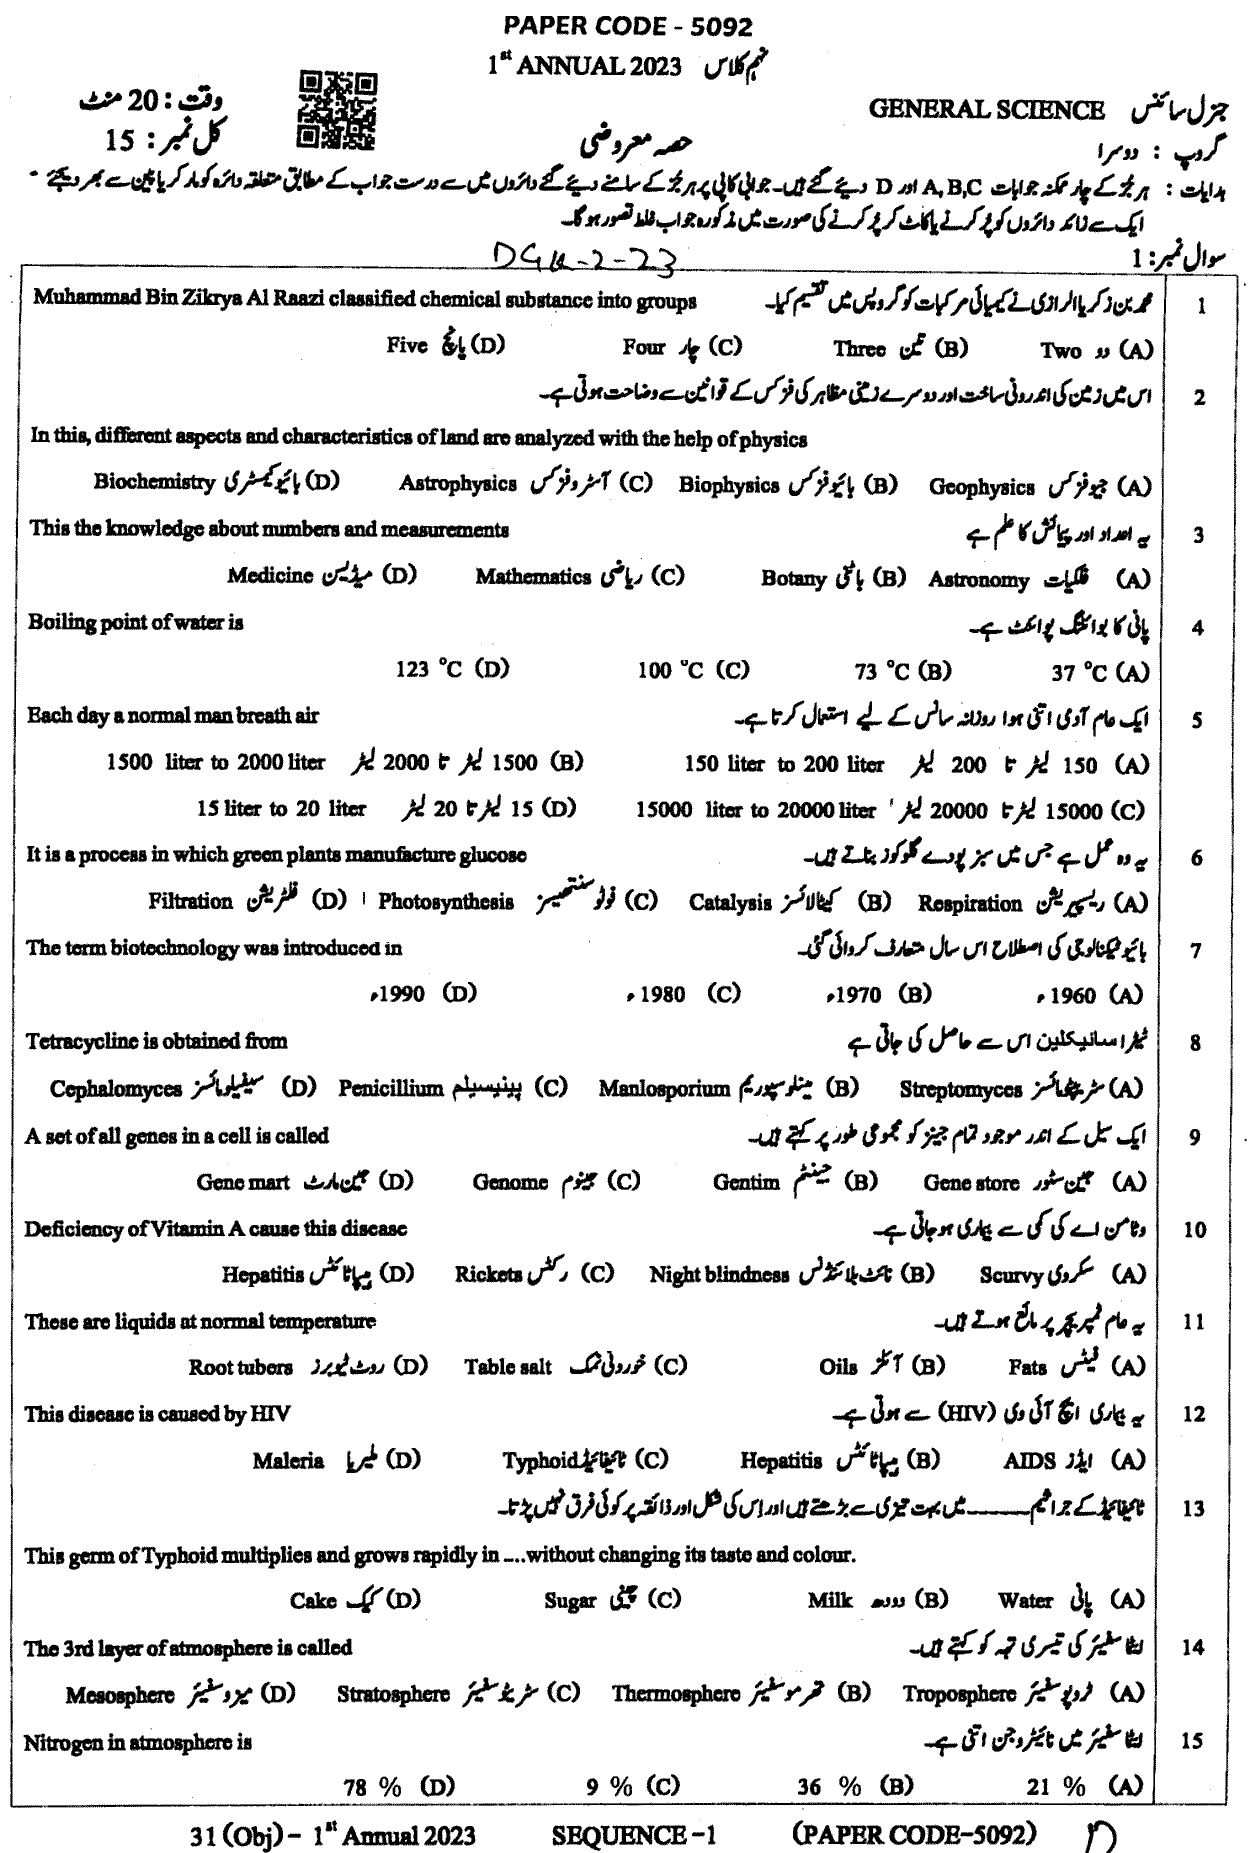 PAPER CODE - 5092
1st ANNUAL 2023 نہم کلاس
GENERAL SCIENCE جنرل سائنس
وقت : 20 منٹ
گروپ : دوسرا
حصہ معروضی
کل نمبر : 15
ہدایات : ہر جُز کے چار ممکنہ جوابات A, B, C اور D دیئے گئے ہیں۔ جوابی کاپی پر ہر جُز کے سامنے دیئے گئے دائروں میں سے درست جواب کے مطابق متعلقہ دائرہ کو مارکر یا پین سے بھر دیجئے -
ایک سے زائد دائروں کو پُر کرنے یا کاٹ کر پُر کرنے کی صورت میں مذکورہ جواب غلط تصور ہو گا۔
سوال نمبر : 1
DGK-2-23
1 محمد بن زکریا الرازی نے کیمیائی مرکبات کو گروپس میں تقسیم کیا۔ Muhammad Bin Zikrya Al Raazi classified chemical substance into groups
(A) دو Two (B) تین Three (C) چار Four (D) پانچ Five
2 اس میں زمین کی اندرونی ساخت اور دوسرے زمینی مظاہر کی فزکس کے قوانین سے وضاحت ہوتی ہے۔
In this, different aspects and characteristics of land are analyzed with the help of physics
(A) جیوفزکس Geophysics (B) بائیوفزکس Biophysics (C) آسٹروفزکس Astrophysics (D) بائیوکیمسٹری Biochemistry
3 یہ اعداد اور پیمائش کا علم ہے This the knowledge about numbers and measurements
(A) فلکیات Astronomy (B) باٹنی Botany (C) ریاضی Mathematics (D) میڈیسن Medicine
4 پانی کا بوائلنگ پوائنٹ ہے۔ Boiling point of water is
37 °C (A) 73 °C (B) 100 °C (C) 123 °C (D)
5 ایک عام آدمی اتنی ہوا روزانہ سانس کے لیے استعمال کرتا ہے۔ Each day a normal man breath air
(A) 150 لیٹر تا 200 لیٹر 150 liter to 200 liter (B) 1500 لیٹر تا 2000 لیٹر 1500 liter to 2000 liter
(C) 15000 لیٹر تا 20000 لیٹر 15000 liter to 20000 liter (D) 15 لیٹر تا 20 لیٹر 15 liter to 20 liter
6 یہ وہ عمل ہے جس میں سبز پودے گلوکوز بناتے ہیں۔ It is a process in which green plants manufacture glucose
(A) ریسپریشن Respiration (B) کیٹالائسز Catalysis (C) فوٹو سنتھیسز Photosynthesis (D) فلٹریشن Filtration
7 بائیوٹیکنالوجی کی اصطلاح اس سال متعارف کروائی گئی۔ The term biotechnology was introduced in
(A) 1960ء (B) 1970ء (C) 1980ء (D) 1990ء
8 ٹیٹراسائیکلین اس سے حاصل کی جاتی ہے Tetracycline is obtained from
(A) سٹریپٹومائسز Streptomyces (B) مینلوسپوریم Manlosporium (C) پینیسیلیم Penicillium (D) سیفیلومائسز Cephalomyces
9 ایک سیل کے اندر موجود تمام جینز کو مجموعی طور پر کہتے ہیں۔ A set of all genes in a cell is called
(A) جین سٹور Gene store (B) جینٹم Gentim (C) جینوم Genome (D) جین مارٹ Gene mart
10 وٹامن اے کی کمی سے بیماری ہو جاتی ہے۔ Deficiency of Vitamin A cause this disease
(A) سکروی Scurvy (B) نائٹ بلائنڈنس Night blindness (C) رکٹس Rickets (D) ہیپاٹائٹس Hepatitis
11 یہ عام ٹمپریچر پر مائع ہوتے ہیں۔ These are liquids at normal temperature
(A) فیٹس Fats (B) آئلز Oils (C) خوردنی نمک Table salt (D) روٹ ٹیوبرز Root tubers
12 یہ بیماری ایچ آئی وی (HIV) سے ہوتی ہے۔ This disease is caused by HIV
(A) ایڈز AIDS (B) ہیپاٹائٹس Hepatitis (C) ٹائیفائیڈ Typhoid (D) ملیریا Maleria
13 ٹائیفائیڈ کے جراثیم ______ میں بہت تیزی سے بڑھتے ہیں اور اِس کی شکل اور ذائقہ پر کوئی فرق نہیں پڑتا۔
This germ of Typhoid multiplies and grows rapidly in ....without changing its taste and colour.
(A) پانی Water (B) دودھ Milk (C) چینی Sugar (D) کیک Cake
14 ایٹماسفیئر کی تیسری تہہ کو کہتے ہیں۔ The 3rd layer of atmosphere is called
(A) ٹروپوسفیئر Troposphere (B) تھرموسفیئر Thermosphere (C) سٹریٹوسفیئر Stratosphere (D) میزوسفیئر Mesosphere
15 ایٹماسفیئر میں نائیٹروجن اتنی ہے۔ Nitrogen in atmosphere is
21 % (A) 36 % (B) 9 % (C) 78 % (D)
31 (Obj) - 1st Annual 2023 SEQUENCE -1 (PAPER CODE-5092)